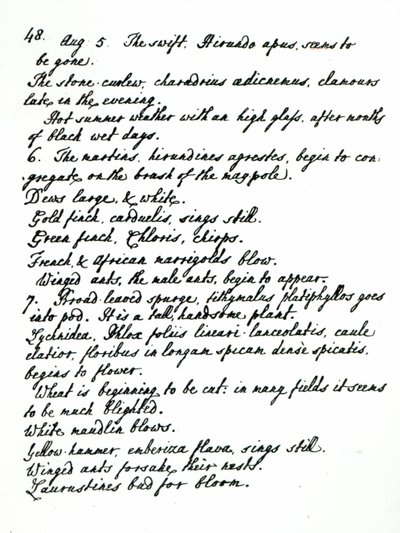 48.
Aug. 5. The swift, Hirundo apus, seems to
be gone.
The stone-curlew, charadrius œdicnemus, clamours
late in the evening.
Hot summer weather with an high glass, after months
of black wet days.
6. The martins, hirundines agrestes, begin to con-
gregate on the brush of the maypole.
Dews large, & white.
Gold finch, carduelis, sings still.
Green finch, Chloris, chirps.
French, & African marrigolds blow.
Winged ants, the male ants, begin to appear.
7. Broad-leaved spurge, tithymalus platiphyllos goes
into pod. It is a tall handsome plant.
Lychnidea, Phlox foliis lineari-lanceolatis, caule
elatior, floribus in longam spicam densè spicatis,
begins to flower.
Wheat is beginning to be cut: in many fields it seems
to be much blighted.
White maudlin blows.
Yellow-hammer, emberiza flava, sings still.
Winged ants forsake their nests.
Laurustines bud for bloom.